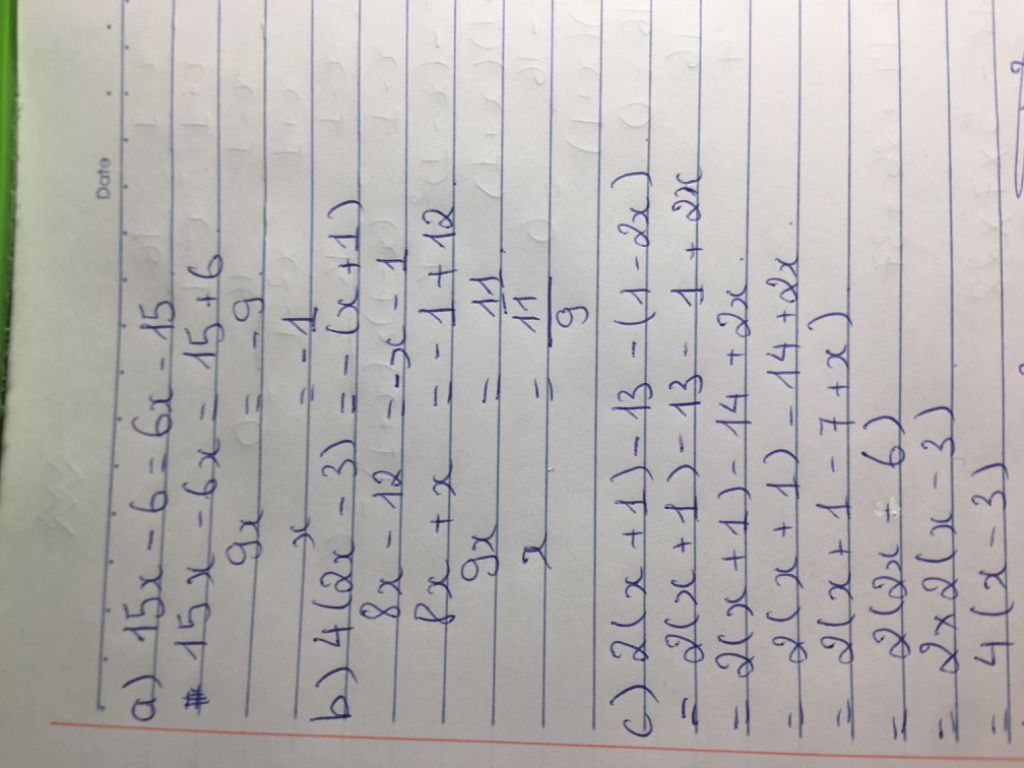 Date
a) 15x - 6 = 6x - 15
15x - 6x = 15 + 6
9x = - 9
x = - 1
b) 4(2x - 3) = - (x + 1)
8x - 12 = - x - 1
8x + x = - 1 + 12
9x = 11
x = 11/9
c) 2(x + 1) - 13 - (1 - 2x)
= 2(x + 1) - 13 - 1 + 2x
= 2(x + 1) - 14 + 2x
= 2(x + 1) - 14 + 2x
= 2(x + 1 - 7 + x)
= 2(2x + 6)
= 2x2(x - 3)
= 4(x - 3)